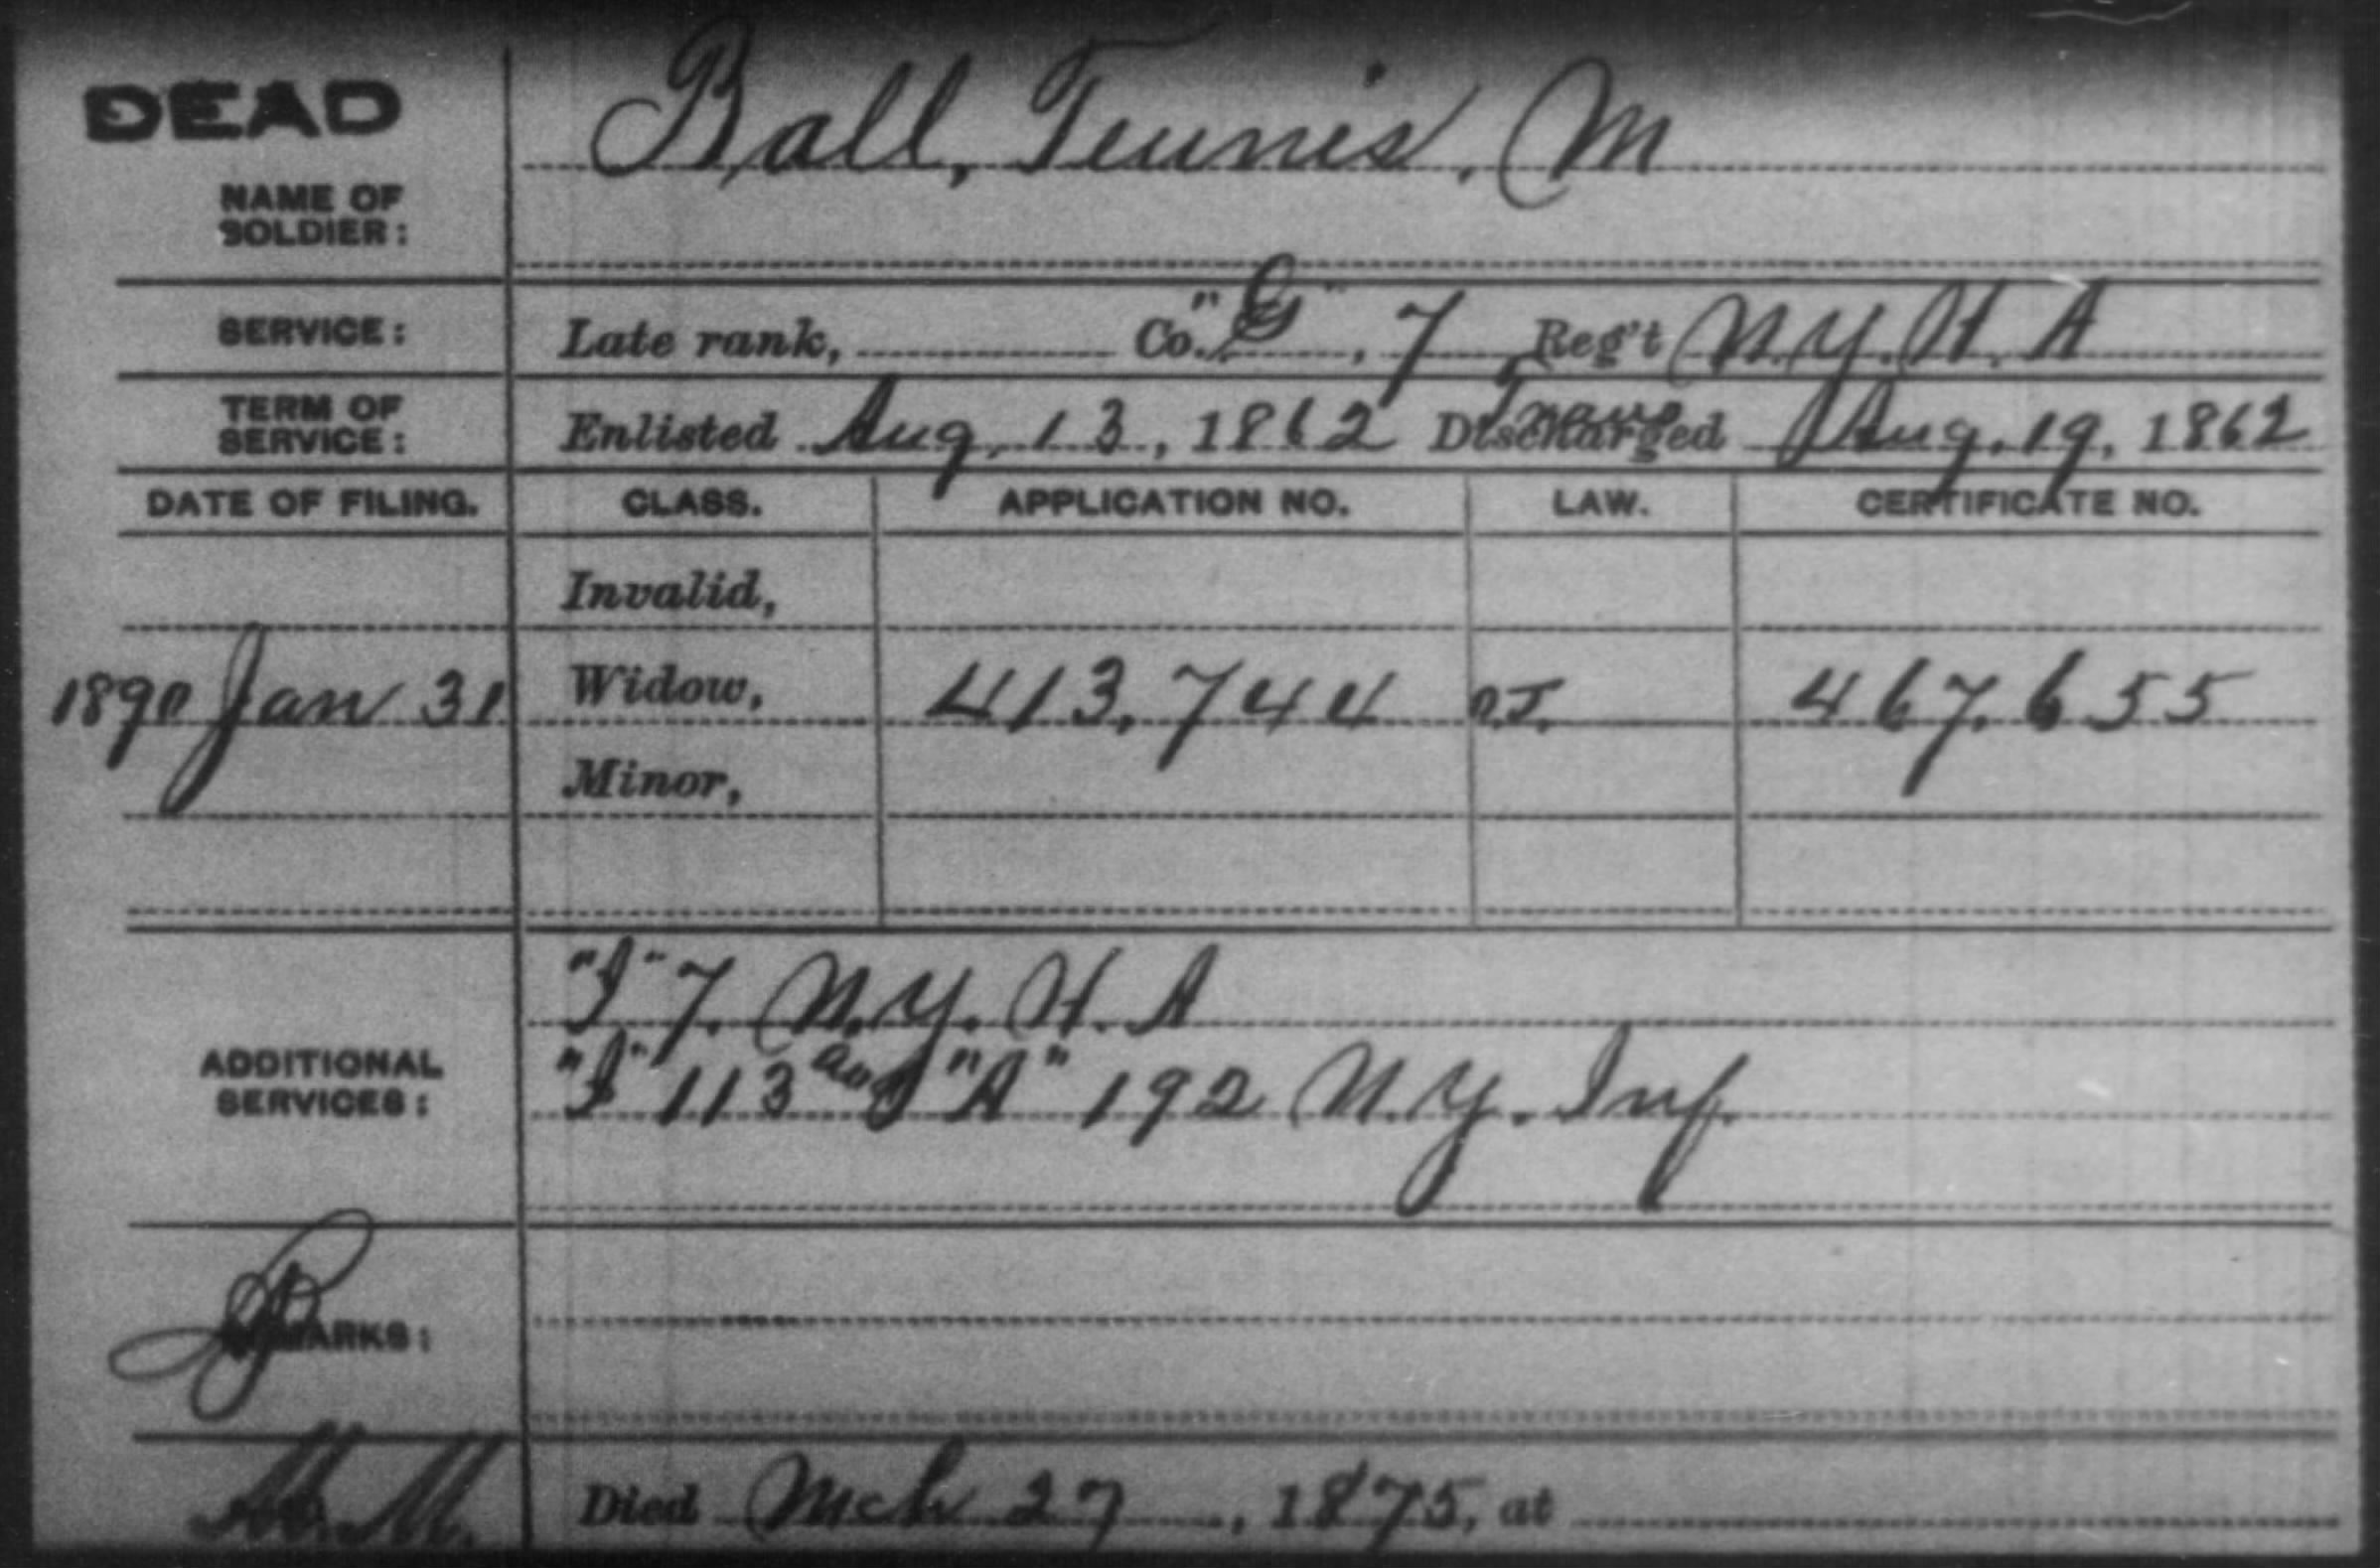 DEAD
Ball, Teunis, M
NAME OF
SOLDIER:
SERVICE: Late rank, Co. "G", 7 Reg't N.Y.H.A
TERM OF
SERVICE: Enlisted Aug. 13, 1862 Discharged Trans Aug. 19, 1862
DATE OF FILING. CLASS. APPLICATION NO. LAW. CERTIFICATE NO.
Invalid,
1890 Jan 31 Widow, 413,744 467,655
Minor,
"I" 7. N.Y. H. A
ADDITIONAL
SERVICES: "I" 113 and "A" 192 N.Y. Inf.
REMARKS:
Died Mch 27, 1875, at